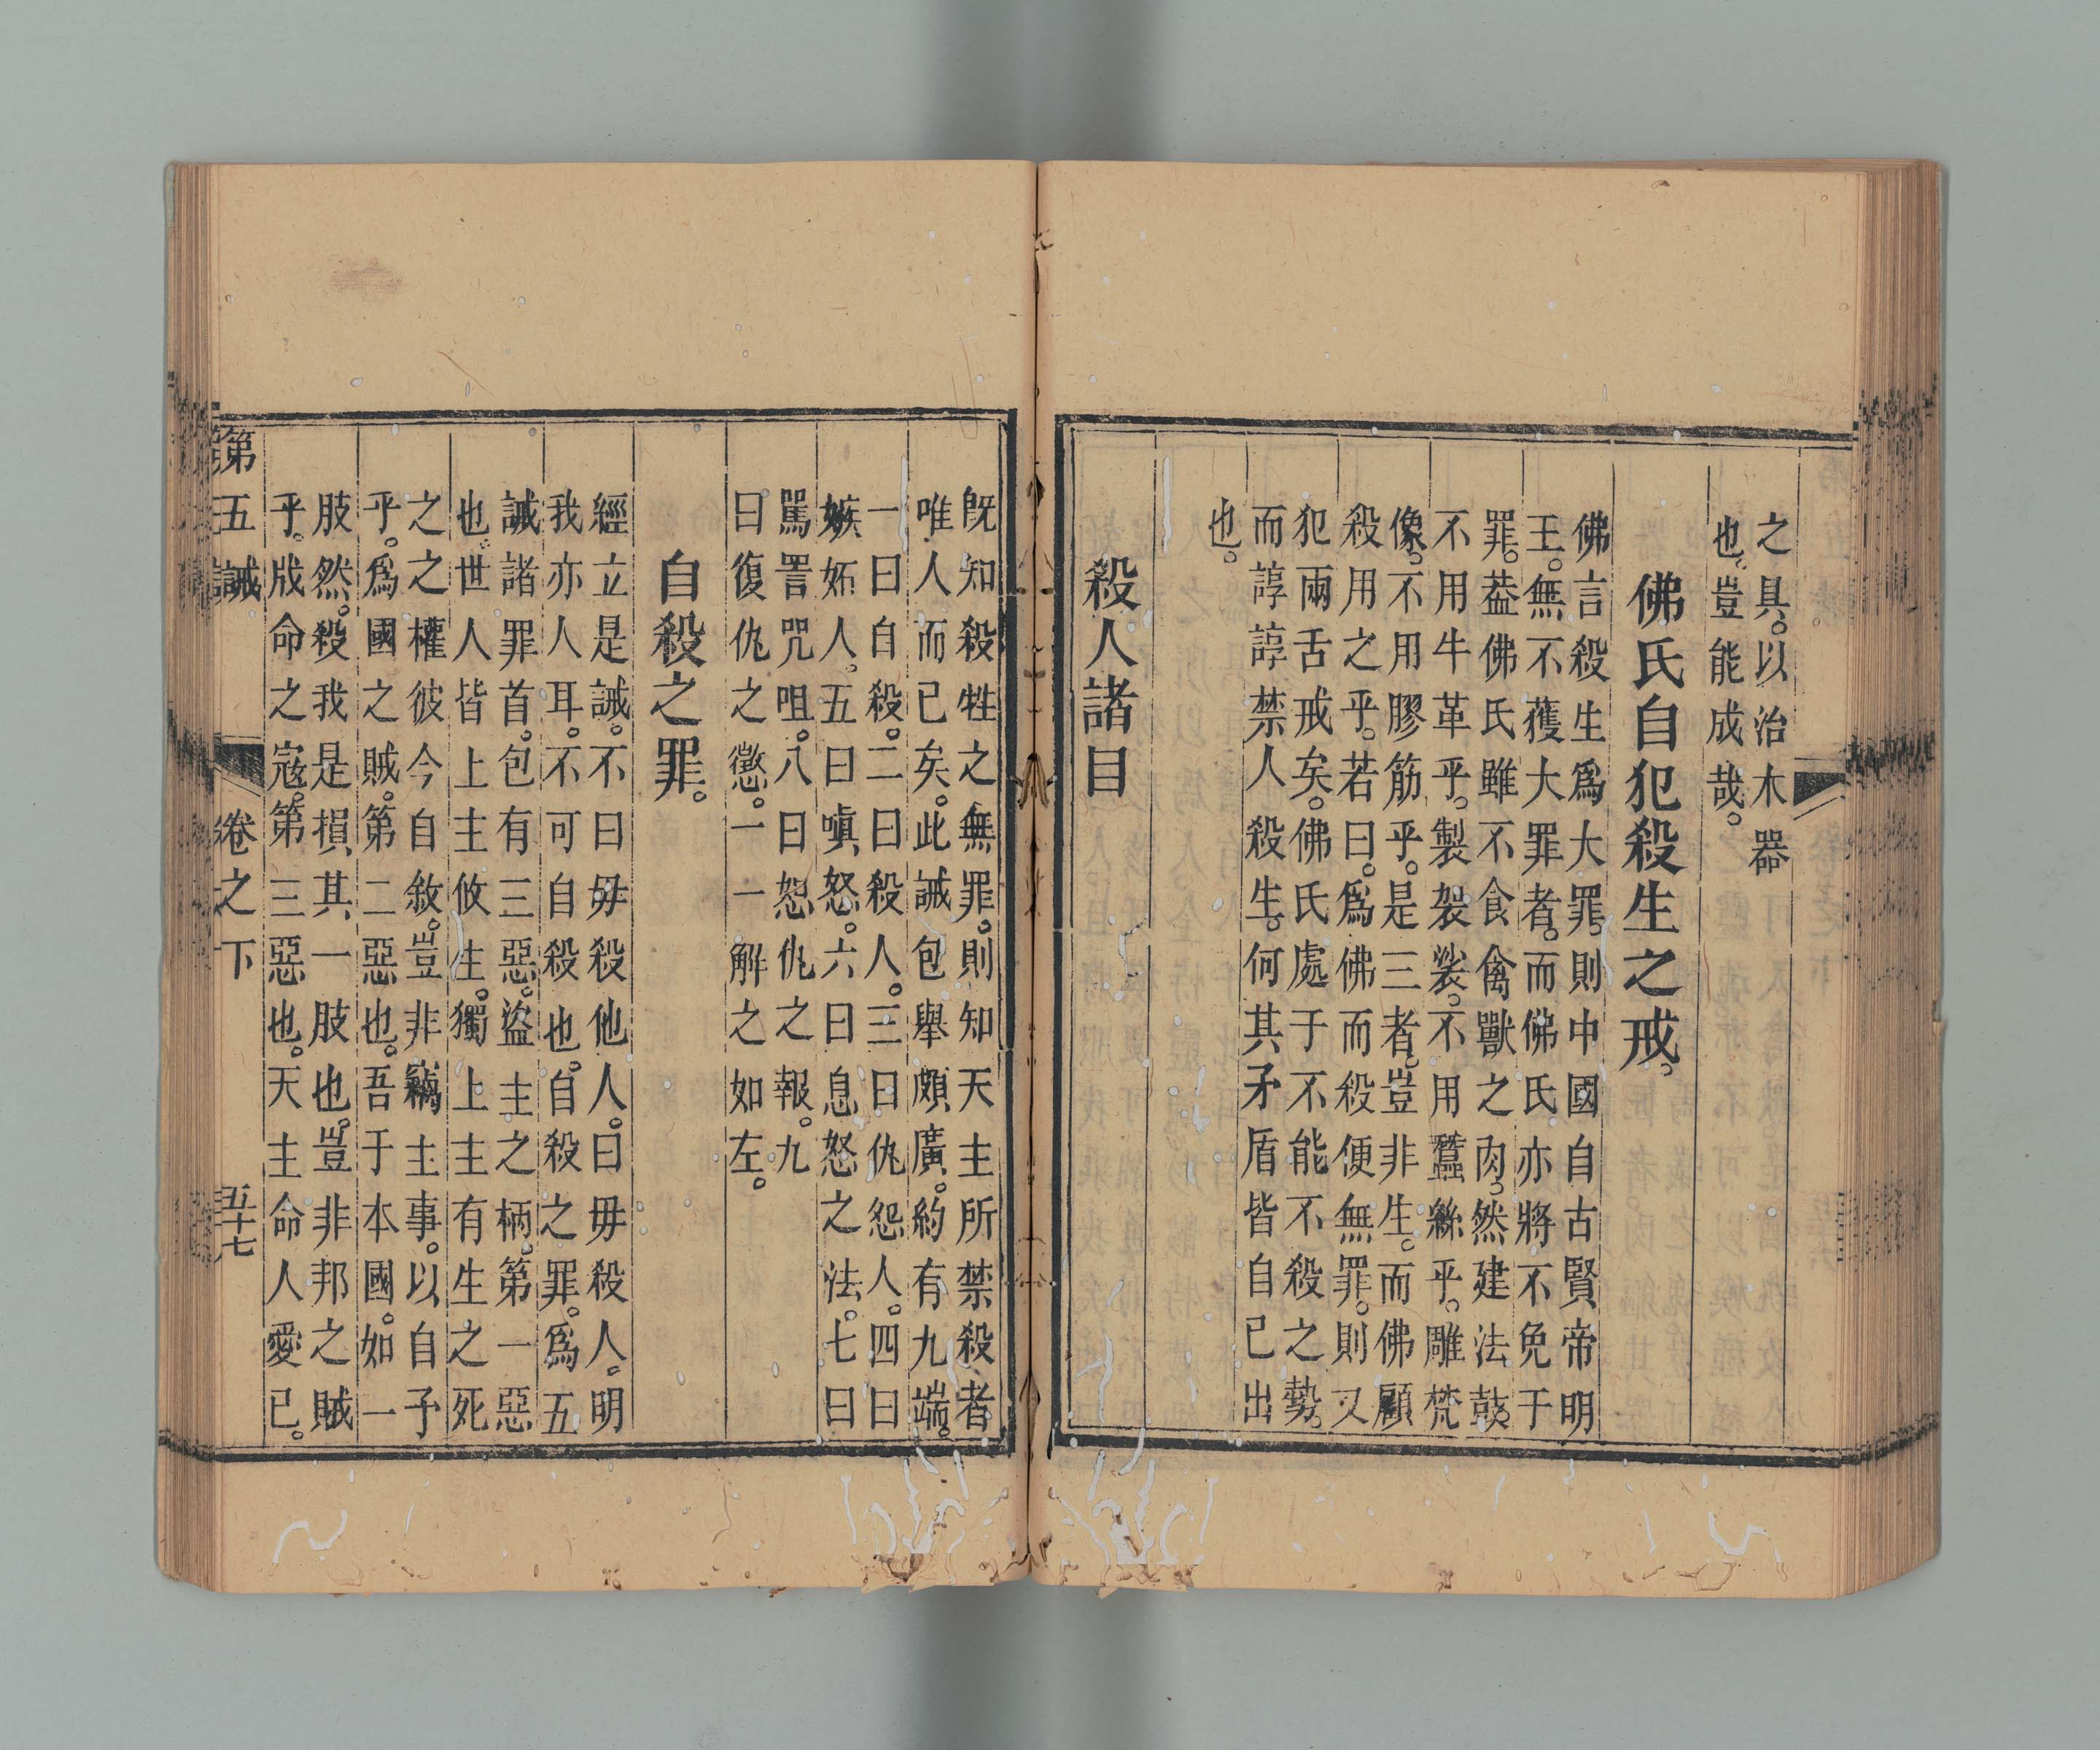 之具。以治木器
也。豈能成哉。
佛氏自犯殺生之戒。
佛言殺生爲大罪。則中國自古賢帝明
王。無不蒦大罪者。而佛氏亦將不免于
罪。葢佛氏雖不食禽獸之肉。然建法鼓。
不用牛革乎。製袈裟。不用蠶絲乎。雕梵
像。不用膠筋乎。是三者。豈非生。而佛顧
殺用之乎。若曰。爲佛而殺便無罪。則又
犯兩舌戒矣。佛氏處于不能不殺之勢。
而諄諄禁人殺生。何其矛盾皆自已出
也。
殺人諸目
旣知殺牲之無罪。則知天主所禁殺者
唯人而已矣。此誡包舉頗廣。約有九端。
一曰自殺。二曰殺人。三曰仇怨人。四曰
嫉妬人。五曰嗔怒。六曰息怒之法。七曰
駡詈咒咀。八曰恕仇之報。九
曰復仇之懲。一一解之如左。
自殺之罪。
經立是誡。不曰毋殺他人。曰毋殺人。明
我亦人耳。不可自殺也。自殺之罪。爲五
誡諸罪首。包有三惡。盜主之柄。第一惡
也。世人皆上主攸生。獨上主有生之死
之之權彼今自敘。豈非竊主事。以自予
乎。爲國之賊。第二惡也。吾于本國。如一
肢然。殺我是損其一肢也。豈非邦之賊
乎。戕命之寇。第三惡也。天主命人愛已。
第五誡 卷之下 五十七